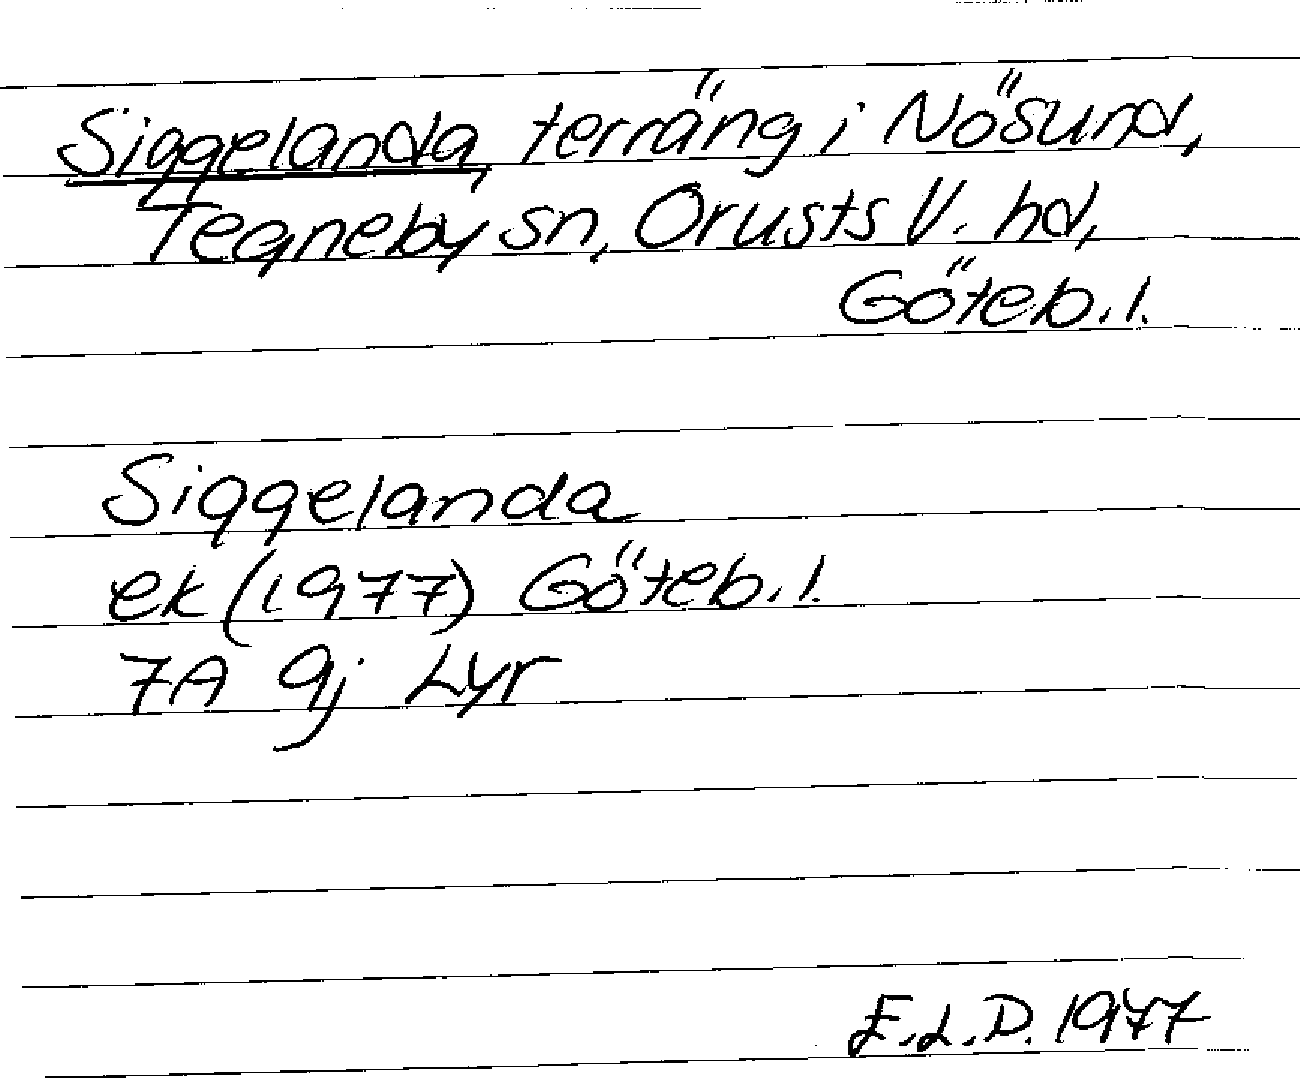 Siggelanda, terräng i Nösund,
Tegneby sn, Orusts V. hd,
Göteb. l.
Siggelanda
ek (1977) Göteb. l.
7A 9j Lyr
E.L.D. 1977